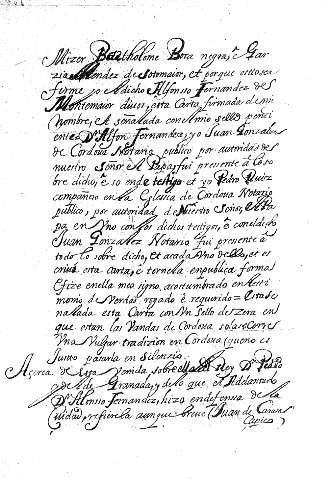 Mizer Bartholome Boca negra, e Gar-
zia Mendez de Sotomaior, et porque esto sea
firme yo el dicho Alfonso Fernandez de
Montemaior di vos, esta Carta, firmada de mi
Nombre, e señalada con el mio sello pen
iente Dn. Alfon Fernandez, yo Juan Gonzalez
de Cordova Notario publico por autoridad de
nuestro Señor el Papa, fui presente à lo so-
bre dicho, e so ende testigo et yo Pedro Ruiz
compañero en la Eglesia de Cordova Notario
publico, por autoridad de Nuestro Señor, el Pa-
pa en Uno con los dichos testigos, e con el dicho
Juan Gonzalez Notario fui presente à
todo lo sobre dicho, et a cada Uno de ello, et es-
crivi esta carta, e tornela en publica forma
e fize en ella meo signo, acostumbrado en testi-
monio de verdad, rogado e requerido = Està se-
nalada esta Carta con Un Sello de zera en
que estan las Vandas de Cordova solas = Corre
Una Vulgar tradition en Cordova, que no es
Justo pasarla en silenzio.
Açerca de esta Venida sobre ella el Rey Dn. Pedro
y el de Granada, y de lo que el Adelantado
Dn. Alonso Fernandez, hizo en defensa de la
Ciudad, refierela aunque breve (Juan de